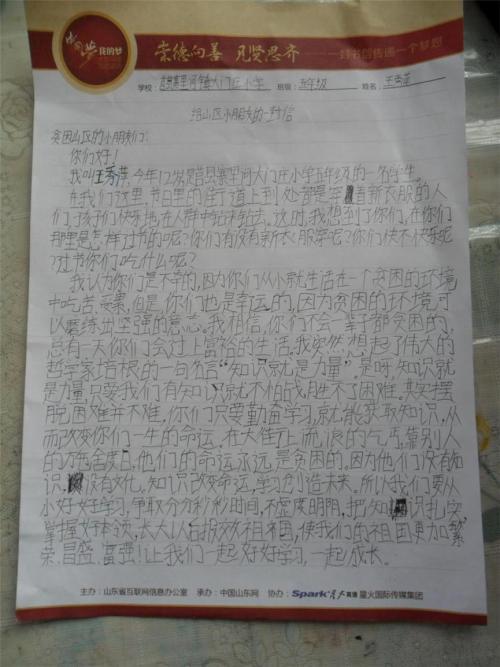 中国梦 我的梦
崇德向善 见贤思齐 ——一封书信传递一个梦想
学校:莒县寨里河镇大门庄小学 班级:五年级 姓名:王秀萍
给山区小朋友的一封信
贫困山区的小朋友们:
你们好!
我叫王秀萍,今年12岁是莒县寨里河大门庄小学五年级的一名学生。
在我们这里,节日里的街道上到处都是穿着新衣服的人
们,孩子们快乐地在人群中钻来钻去。这时,我想到了你们,在你们
那里是怎样过节的呢?你们有没有新衣服穿呢?你们快不快乐呢
?过节你们吃什么呢?
我认为你们是不幸的,因为你们从小就生活在一个贫困的环境
中吃苦、受累,但是你们也是幸运的,因为贫困的环境可
以磨练出坚强的意志。我相信,你们不会一辈子都贫困的,
总有一天你们会过上富裕的生活。我突然想起了伟大的
哲学家培根的一句名言“知识就是力量”。是呀,知识就
是力量,只要我们有知识就不怕战胜不了困难。其实摆
脱困难并不难,你们只要勤奋学习,就能获取知识,从
而改变你们一生的命运。在大街上流浪的气丐,靠别人
的巧色金度日,他们的命运永远是贫困的。因为他们没有知
识,没有文化,知识改变命运,学习创造未来。所以我们要从
小好好学习,争取分分秒秒时间,不虚度明阴,把知识扎实
掌握好本领,长大以后报效祖国,使我们的祖国更加繁
荣、昌盛、富强!让我们一起好好学习,一起成长。
主办:山东省互联网信息办公室 承办:中国山东网 协办:Spark星火英语 星火国际传媒集团